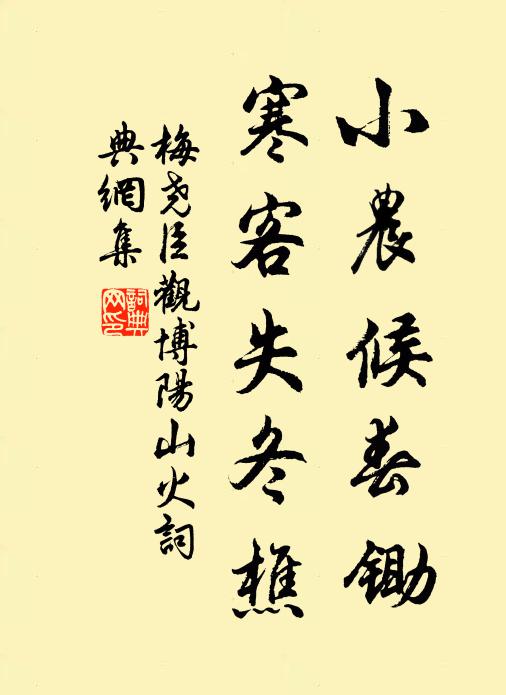 小農候春鋤
寒客失冬樵
梅堯臣觀博陽山火詞
典網集
詞典
网印